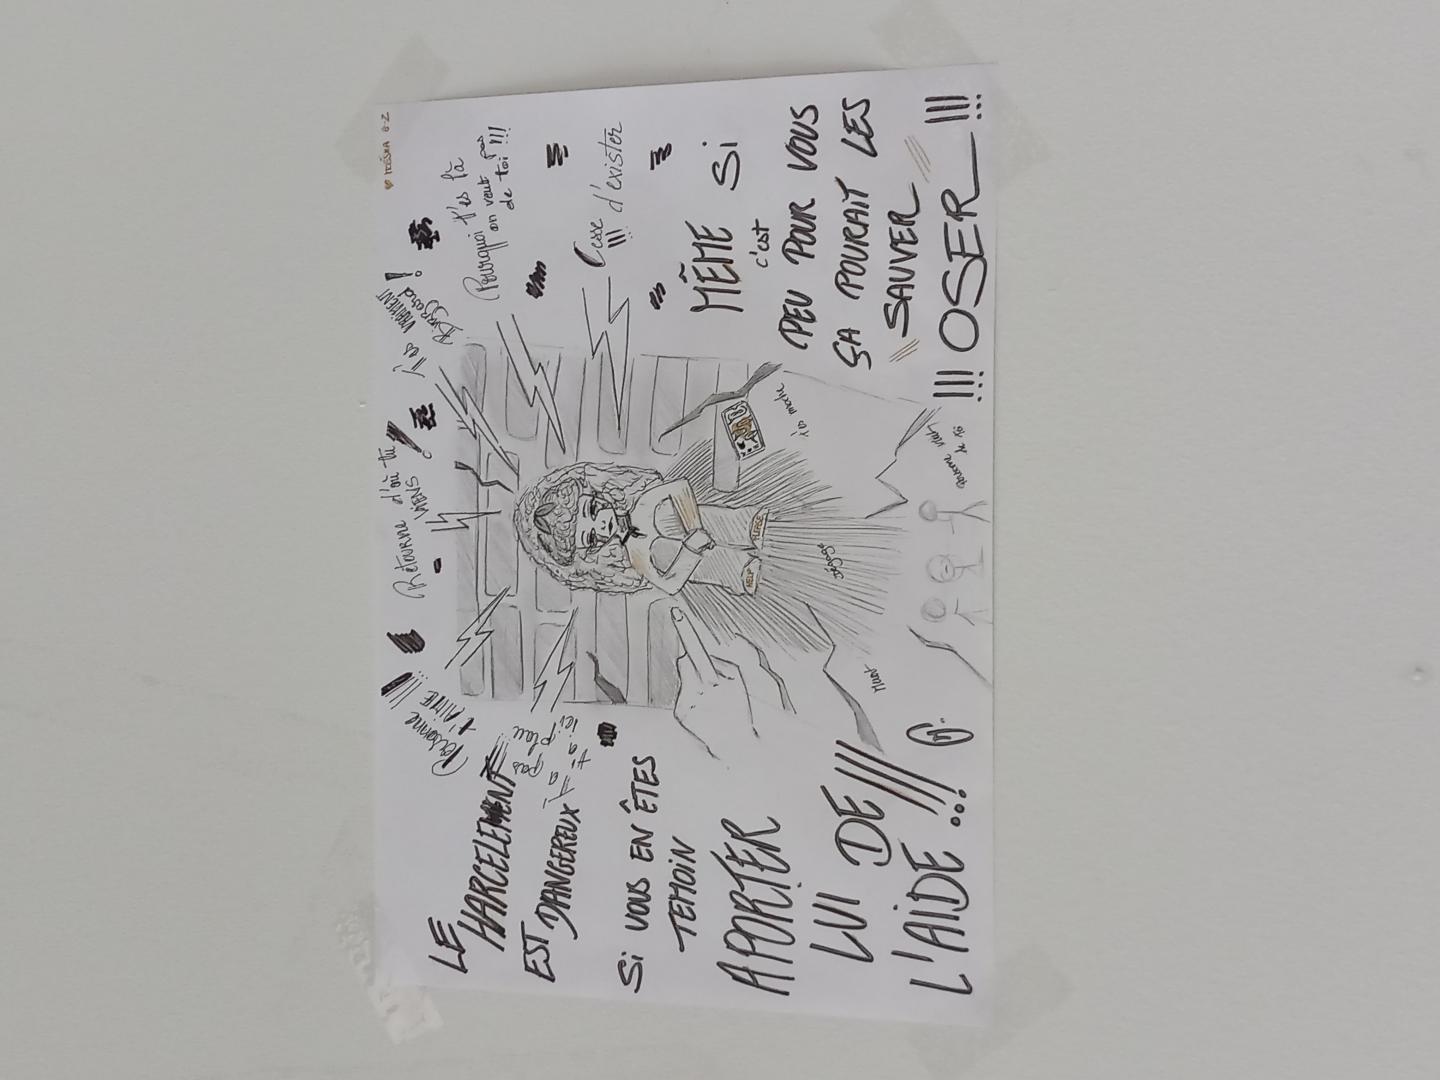 LE
HARCELEMENT
EST
DANGEREUX
SI VOUS EN ÊTES
TEMOIN
APORTER
LUI DE
L'AIDE...!!!
Personne !!!
t'AIME
T'a pas
ta place
ici
Retourne d'où tu
VIENS !
T'es VRAIMENT
Bizzard !
Pourquoi t'es là
on veut pas
de toi !!!
Cesse d'exister
!!!
MÊME SI
c'est
PEU POUR VOUS
ÇA POURAIT LES
SAUVER
!!! OSER !!!
HELP
PLEASE
t'es moche
Dégage
de toi